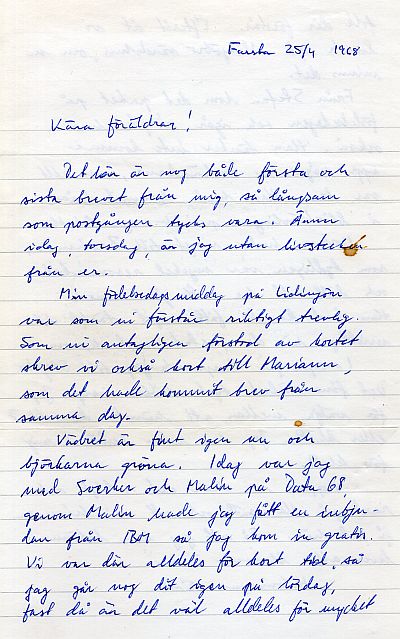 Farsta 25/4 1968
Kära föräldrar!
Det här är nog både första och
sista brevet från mig, så långsam
som postgången tycks vara. Ännu
idag, torsdag, är jag utan livstecken
från er.
Min födelsedagsmiddag på Lidingön
var som ni förstår riktigt trevlig.
Som ni antagligen förstod av kortet
skrev vi också kort till Mariann,
som det hade kommit brev från
samma dag.
Vädret är fint igen nu och
björkarna gröna. Idag var jag
med Sverker och Malin på Data 68,
genom Malin hade jag fått en inbju-
dan från IBM så jag kom in gratis.
Vi var där alldeles för kort tid, så
jag går nog dit igen på lördag,
fast då är det väl alldeles för mycket